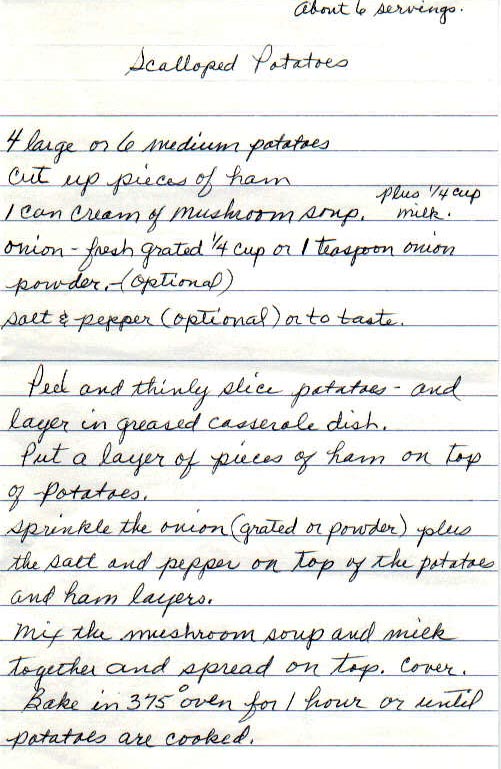 About 6 servings.
Scalloped Potatoes
4 large or 6 medium potatoes
Cut up pieces of ham
1 can cream of mushroom soup. plus 1/4 cup milk.
onion - fresh grated 1/4 cup or 1 teaspoon onion
powder. - (optional)
salt & pepper (optional) or to taste.
Peel and thinly slice potatoes - and
layer in greased casserole dish.
Put a layer of pieces of ham on top
of potatoes.
sprinkle the onion (grated or powder) plus
the salt and pepper on top of the potatoes
and ham layers.
Mix the mushroom soup and milk
together and spread on top. Cover.
Bake in 375° oven for 1 hour or until
potatoes are cooked.